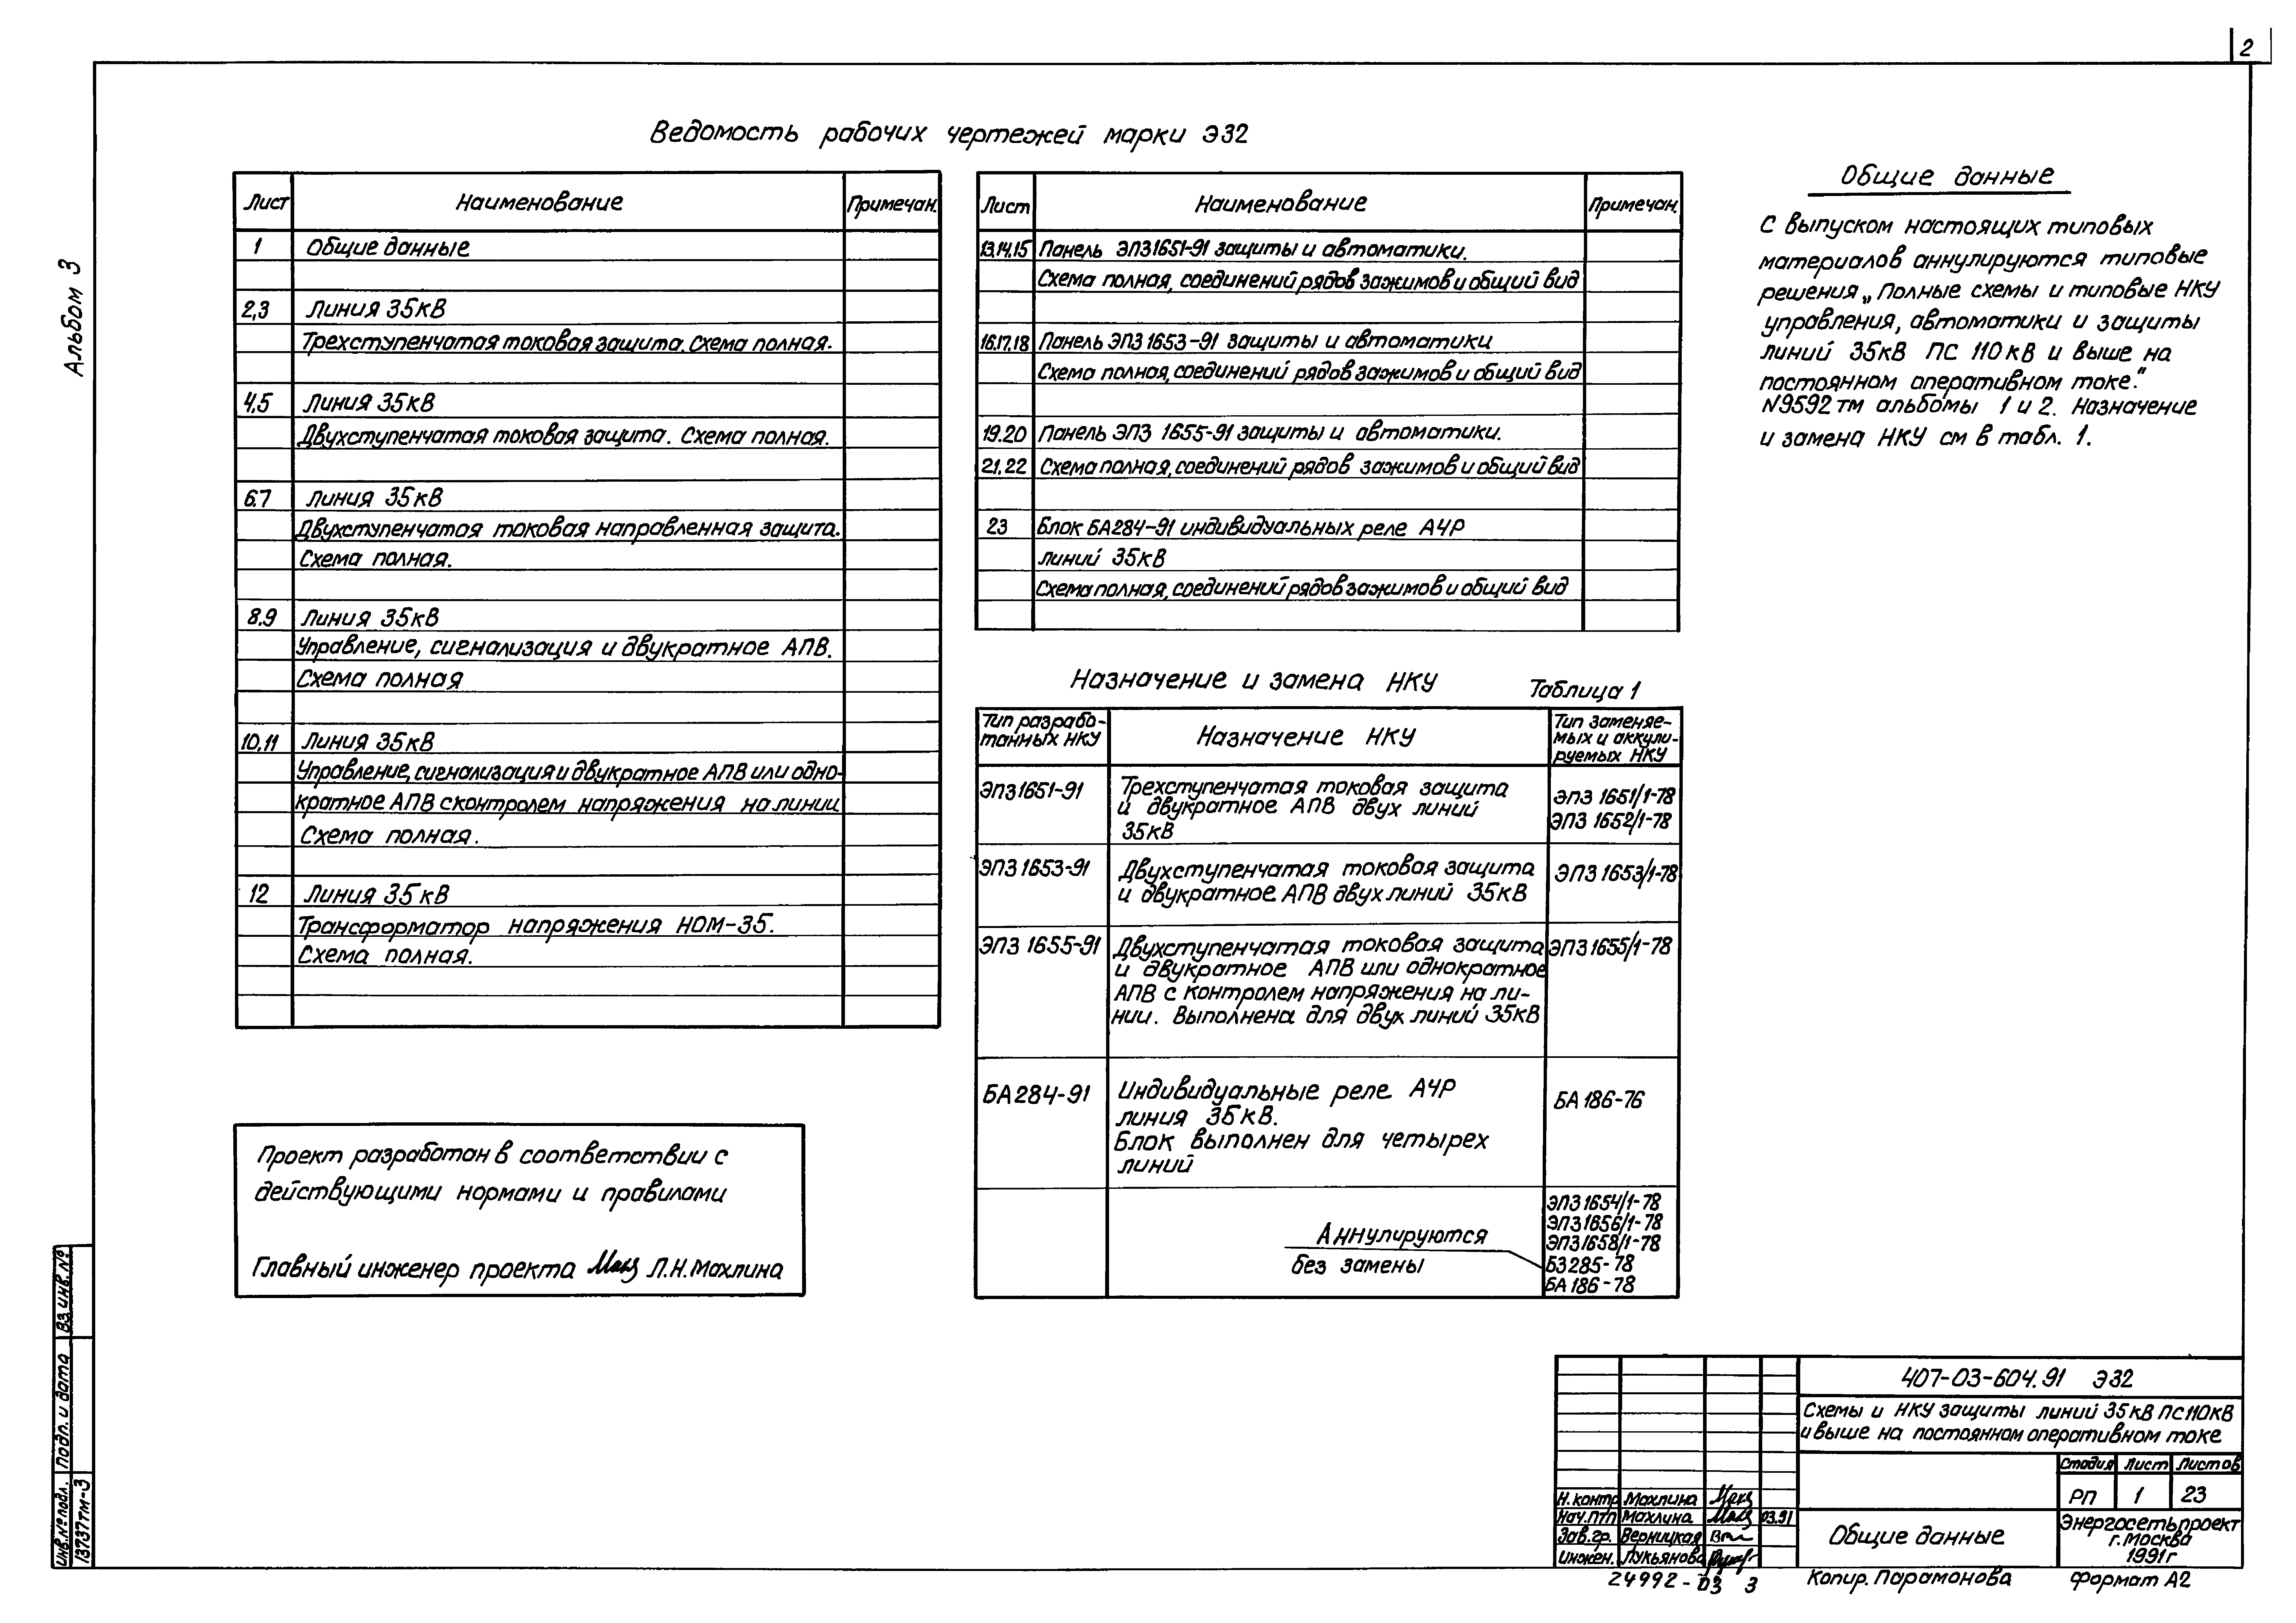 2
Альбом 3
Ведомость рабочих чертежей марки Э32
Лист Наименование Примечан.
1 Общие данные
2,3 Линия 35кВ
Трехступенчатая токовая защита. Схема полная.
4,5 Линия 35кВ
Двухступенчатая токовая защита. Схема полная.
6.7 Линия 35кВ
Двухступенчатая токовая направленная защита.
Схема полная.
8.9 Линия 35кВ
Управление, сигнализация и двукратное АПВ.
Схема полная
10,11 Линия 35кВ
Управление, сигнализация и двукратное АПВ или одно-
кратное АПВ с контролем напряжения на линии
Схема полная.
12 Линия 35кВ
Трансформатор напряжения НОМ-35.
Схема полная.
Лист Наименование Примечан.
13.14.15 Панель ЭПЗ1651-91 защиты и автоматики.
Схема полная, соединений рядов зажимов и общий вид
16.17.18 Панель ЭПЗ 1653-91 защиты и автоматики
Схема полная, соединений рядов зажимов и общий вид
19.20 Панель ЭПЗ 1655-91 защиты и автоматики.
21.22 Схема полная, соединений рядов зажимов и общий вид
23 Блок БА284-91 индивидуальных реле АЧР
линий 35кВ
Схема полная, соединений рядов зажимов и общий вид
Общие данные
С выпуском настоящих типовых
материалов аннулируются типовые
решения „Полные схемы и типовые НКУ
управления, автоматики и защиты
линий 35кВ ПС 110кВ и выше на
постоянном оперативном токе."
N9592тм альбомы 1 и 2. Назначение
и замена НКУ см в табл. 1.
Назначение и замена НКУ Таблица 1
Тип разрабо-
танных НКУ
Назначение НКУ
Тип заменяе-
мых и аккули-
руемых НКУ
ЭПЗ1651-91
Трехступенчатая токовая защита
и двукратное АПВ двух линий
35кВ
ЭПЗ 1651/1-78
ЭПЗ 1652/1-78
ЭПЗ 1653-91
Двухступенчатая токовая защита
и двукратное АПВ двух линий 35кВ
ЭПЗ 1653/1-78
ЭПЗ 1655-91
Двухступенчатая токовая защита
и двукратное АПВ или однократное
АПВ с контролем напряжения на ли-
нии. Выполнена для двух линий 35кВ
ЭПЗ 1655/1-78
БА284-91
Индивидуальные реле АЧР
линия 35кВ.
Блок выполнен для четырех
линий
БА 186-76
Аннулируются
без замены
ЭПЗ 1654/1-78
ЭПЗ 1656/1-78
ЭПЗ 1658/1-78
БЗ285-78
БА 186-78
Проект разработан в соответствии с
действующими нормами и правилами
Главный инженер проекта Л.Н.Махлина
407-03-604.91 Э32
Схемы и НКУ защиты линий 35кВ ПС110кВ
и выше на постоянном оперативном токе
Стадия Лист Листов
РП 1 23
Общие данные
Энергосетьпроект
г. Москва
1991г
Н. контр Махлина
Нач.ПТП Махлина 03.91
Зав.гр. Верницкая
Инжен. Лукьянова
24992-03 3
Копир. Парамонова
Формат А2
Инв.№подл. Подп. и дата Вз инв. №
13737тм-3